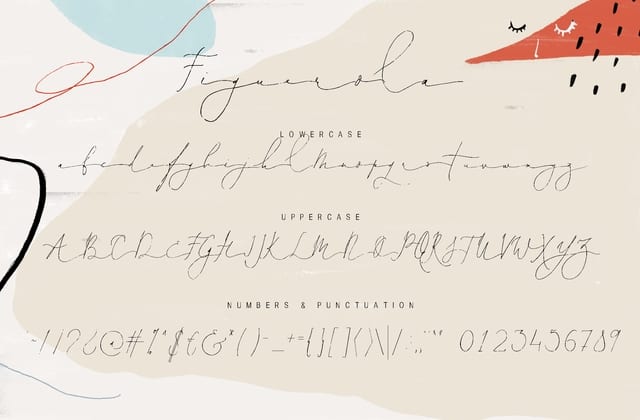 Figuerola
LOWERCASE
a b c d e f g h i j k l m n o p q r s t u v w x y z
UPPERCASE
A B C D E F G H I J K L M N O P Q R S T U V W X Y Z
NUMBERS & PUNCTUATION
0 1 2 3 4 5 6 7 8 9